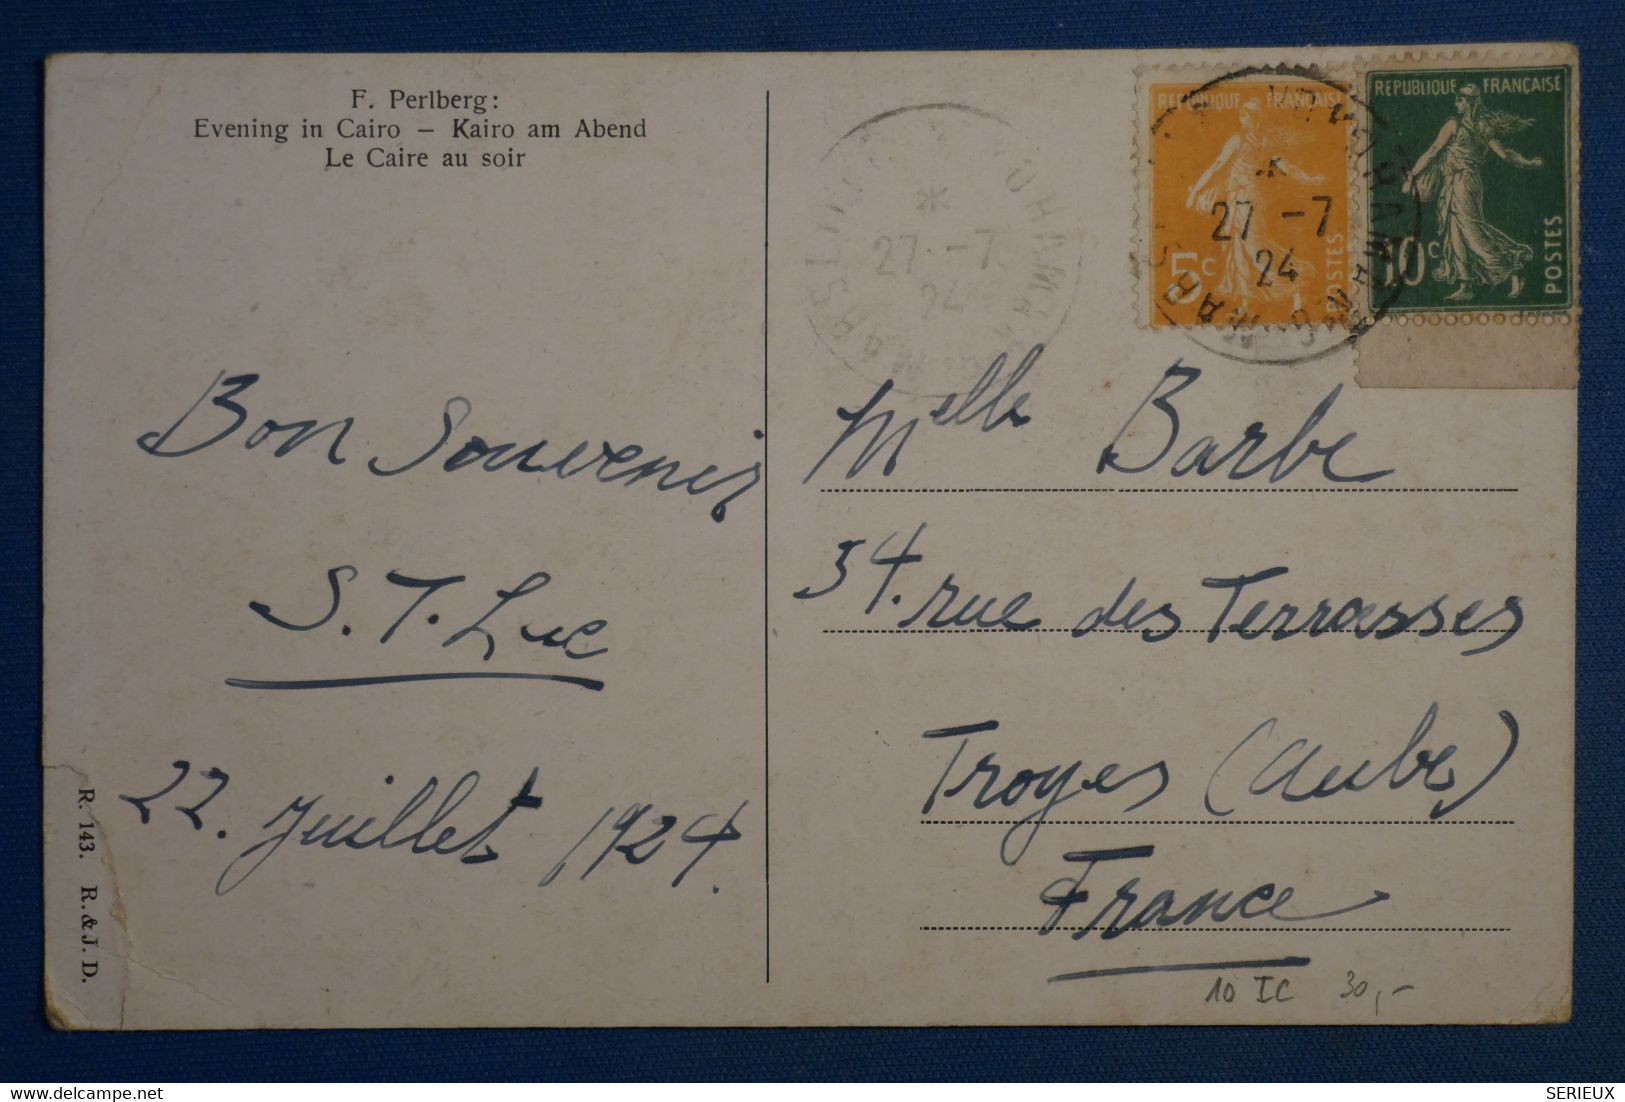 F. Perlberg:
Evening in Cairo – Kairo am Abend
Le Caire au soir
REPUBLIQUE FRANÇAISE
5c
POSTES
REPUBLIQUE FRANÇAISE
10c
POSTES
27 -7
24
27 -7
24
Bon Souvenir
Luc
22. Juillet 1924.
Melle Barbe
34. rue des Terrasses
Troyes (Aube)
France
10 IC 30,-
R. 143. R. & J. D.
SERIEUX